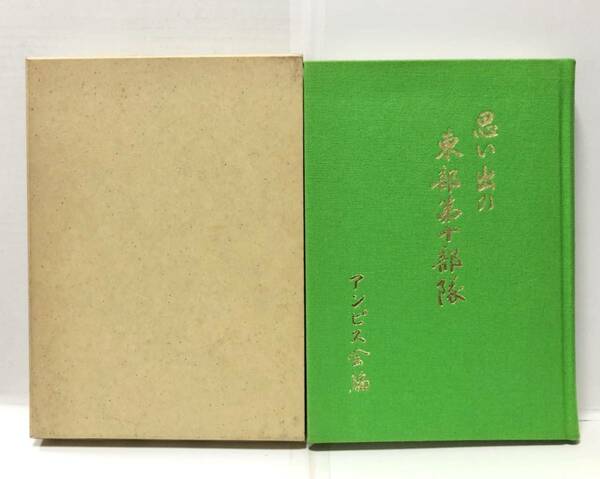 思い出の
東部第十部隊
アンピス会編